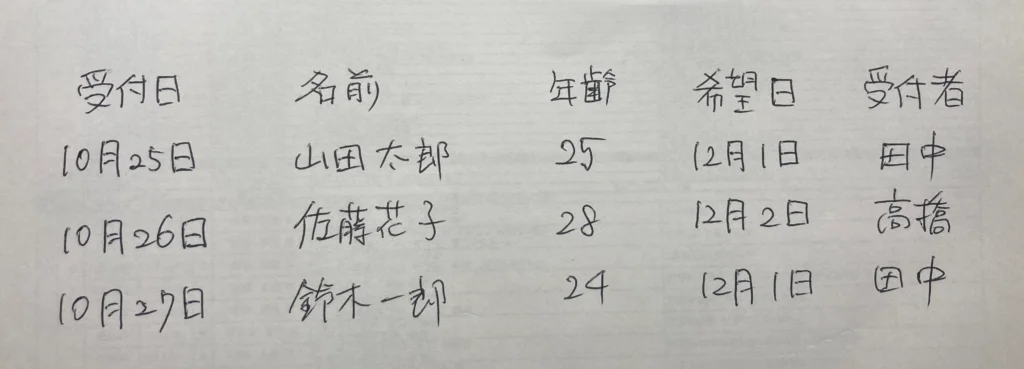 受付日 名前 年齢 希望日 受付者
10月25日 山田太郎 25 12月1日 田中
10月26日 佐藤花子 28 12月2日 高橋
10月27日 鈴木一郎 24 12月1日 田中